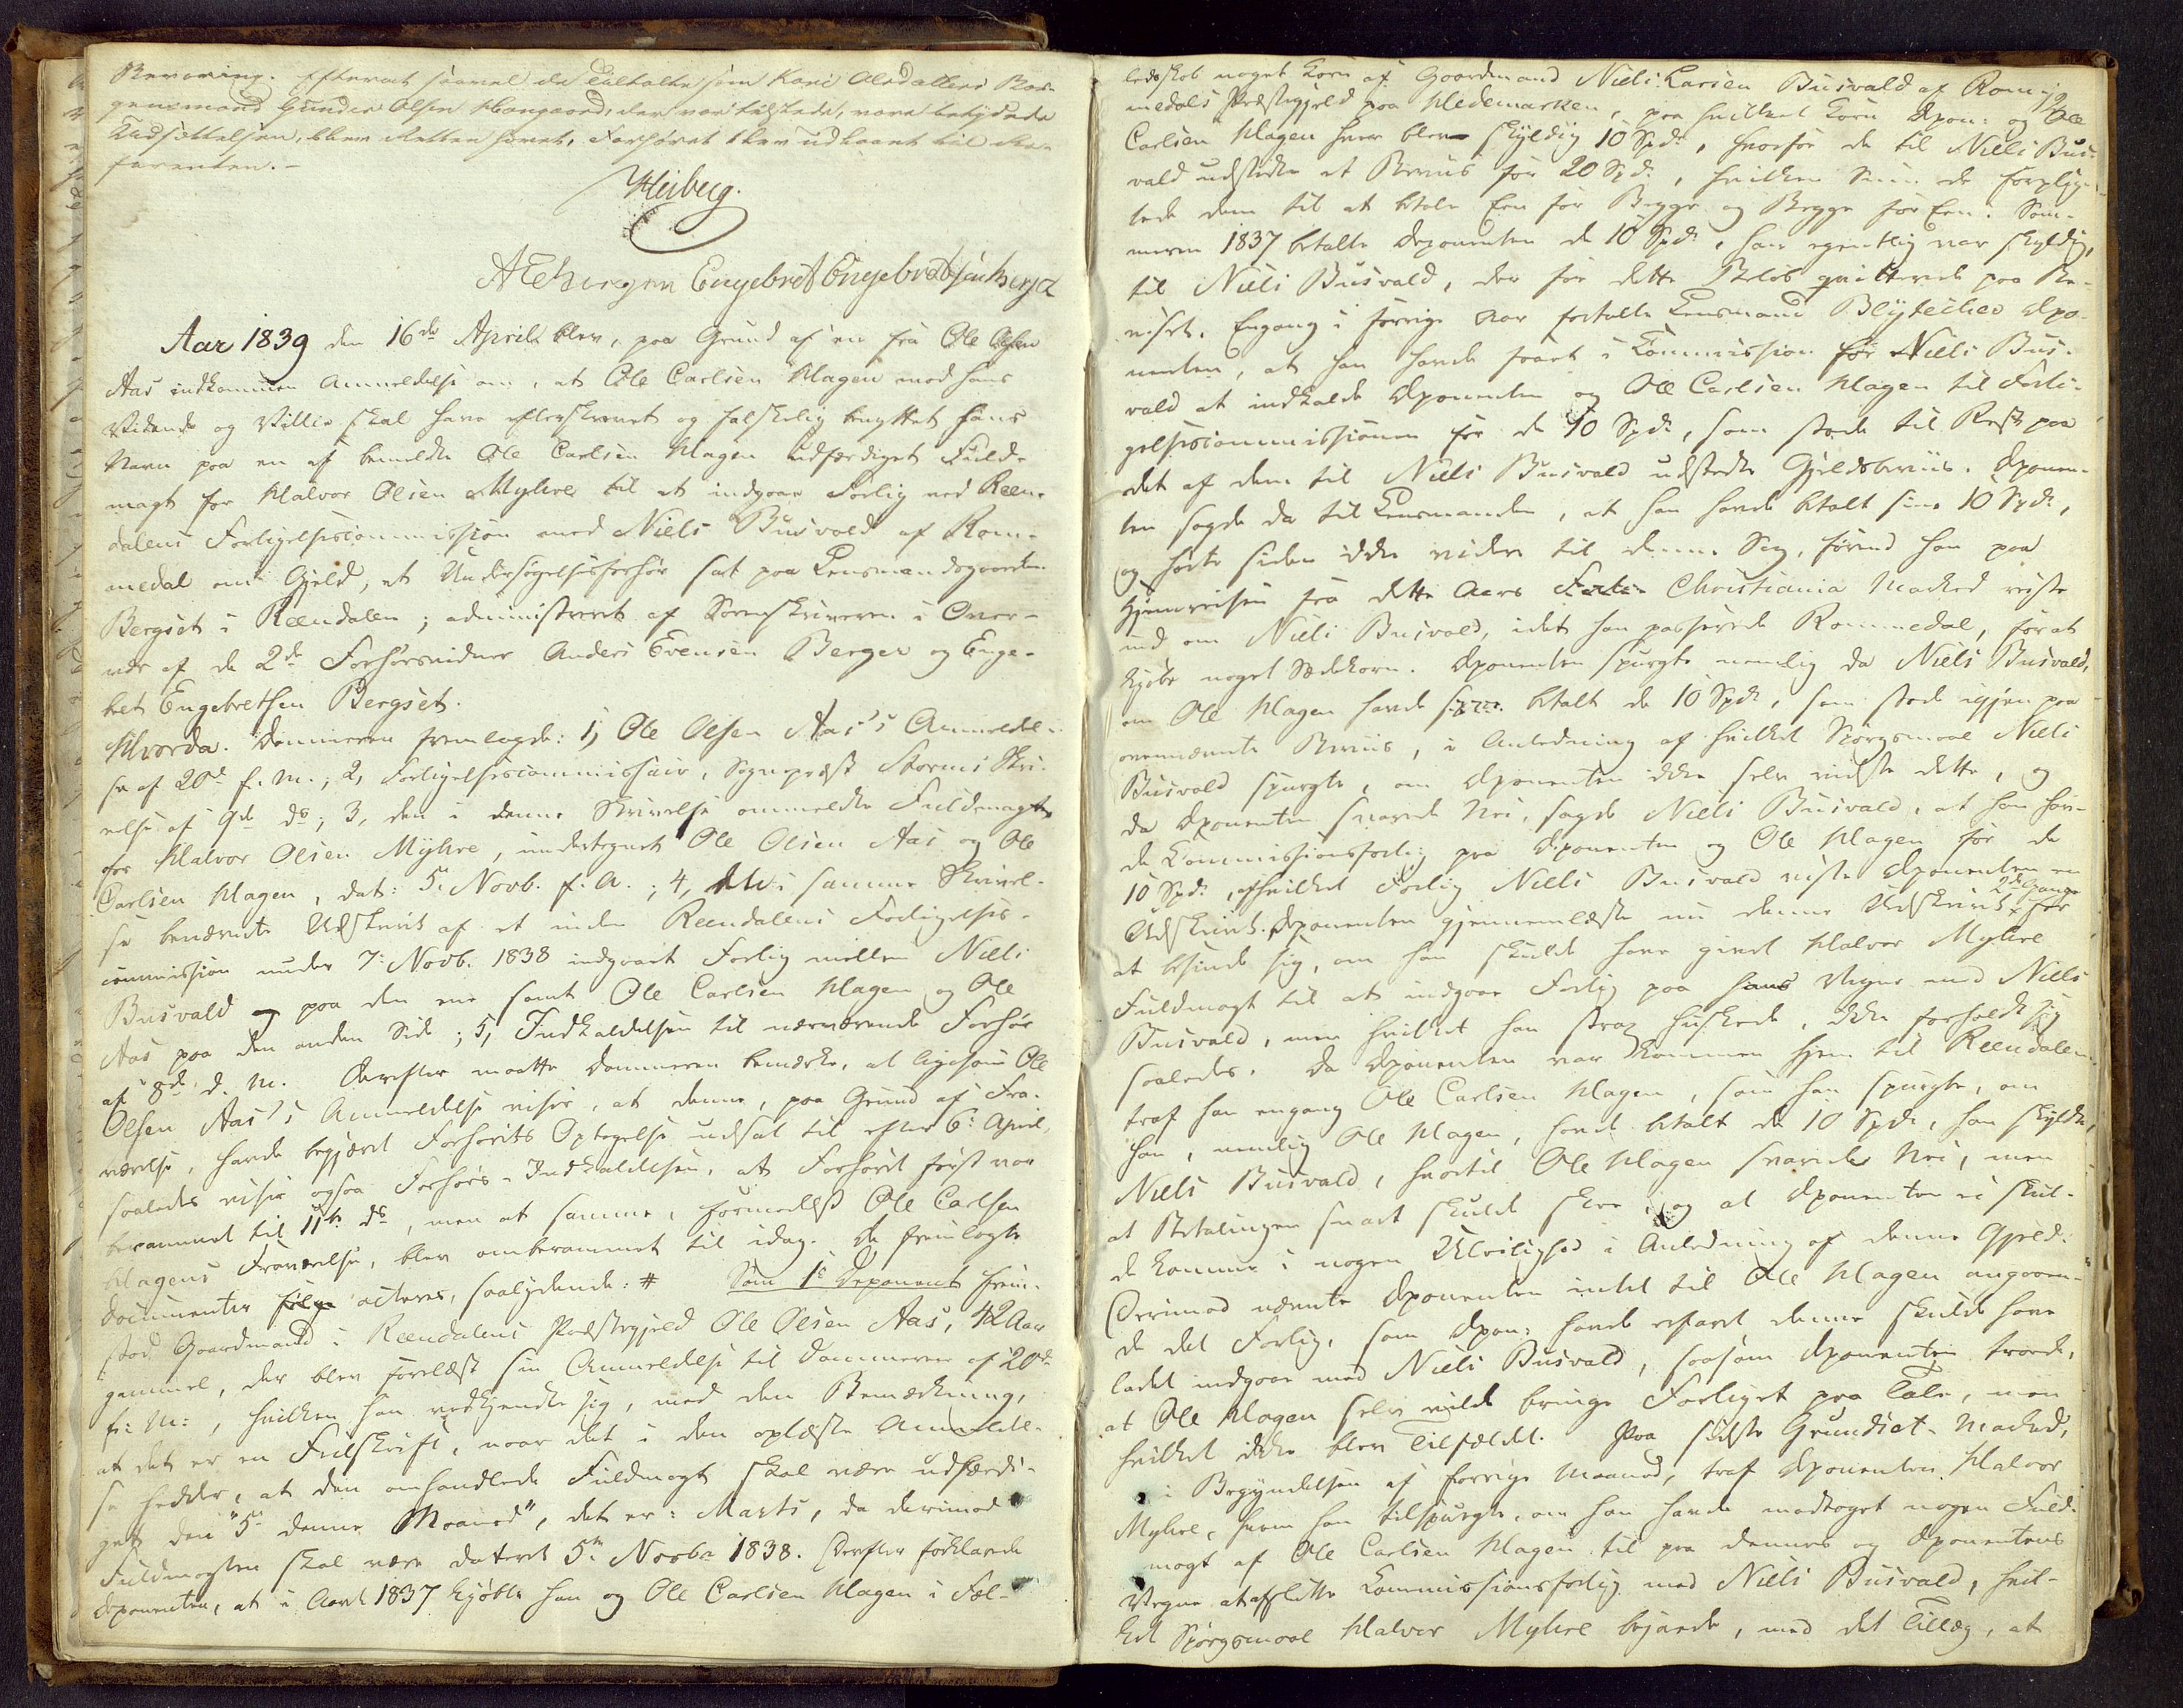 Beværing. Efterat saavel de Tiltalte som Kari Alsdatters Bor-
gensmand Gunder Olsen Haugaard, der var tilstede, vare betydede
Udsættelsen, blev Retten hævet. Forhøret blev udlaant til De-
ferenten.-
Heiberg.
AEBergen Engebret Engebretsen Berget
Aar 1839 den 16de April blev, paa Grund af en fra Ole Olsen
Aas indkommen Anmeldelse om, at Ole Carlsen Hagen mod hans
Vidende og Villie skal have efterskrevet og falskelig benyttet hans
Navn paa en af bemeldte Ole Carlsen Hagen udfærdiget Fuld-
magt for Halvor Olsen Myhre til at indgaae Forlig ved Reen-
dalens Forligelsescommission med Niels Busvold af Rom-
medal om Gjeld, et Undersøgelsesforhør sat paa Lensmandsgaarden
Bergset i Reendalen; administreret af Sorenskriveren i Over-
vær af de 2de Forhørsvidner Anders Evensen Berger og Enge-
bret Engebretsen Bergset.
Hvorda. Dommeren fremlagde: 1, Ole Olsen Aas's Anmeldel-
se af 20de f. M.; 2, Forligelsescommissair, Sognepræst Storms Skri-
velse af 9de ds; 3, den i denne Skrivelse ommeldte Fuldmagt
for Halvor Olsen Myhre, undertegnet Ole Olsen Aas og Ole
Carlsen Hagen, dat: 5. Novb. f. A.; 4, det i samme Skrivel-
se benævnte Udskrivt af et inden Reendalens Forligelses-
commission under 7. Novb. 1838 indgaaet Forlig mellem Niels
Busvald paa den ene samt Ole Carlsen Hagen og Ole
Aas paa den anden Side; 5, Indkaldelsen til nærværende Forhør
af 8de d. M. Derefter maatte Dommeren bemærke, at ligesom Ole
Olsen Aas's Anmeldelse viser, at denne, paa Grund af Fra-
værelse, havde begjæret Forhørets Optagelse udsat til efter 6. April,
saaledes viser ogsaa Forhørs-Indkaldelsen, at Forhøret først var
berammet til 11te ds, men at samme, formedelst Ole Carlsen
Hagens Fraværelse, blev omberammet til idag. De fremlagte
Documenter følge acteres, saalydende: # Som 1e Deponent frem-
stod Gaardmand i Reendalens Præstegjeld Ole Olsen Aas, 42 Aar
gammel, der blev forelæst sin Anmeldelse til Dommeren af 20de
f: M:, hvilken han vedkjendte sig, med den Bemærkning,
at det er en Feilskrift, naar det i den oplæste Anmeldel-
se hedder, at den omhandlede Fuldmagt skal være udfærdi-
get den "5. denne Maaned", det er: Marts, da derimod
Fuldmagten skal være dateret 5te Novbr 1838. Derefter forklarede
Deponenten, at i Aaret 1837 kjøbte han og Ole Carlsen Hagen i Fæl-
ledsskab noget Korn af Gaardmand Niels Larsen Busvald af Rom-
medals Præstegjeld paa Hedemarken, paa hvilket Korn Depon: og Ole
Carlsen Hagen hver blev skyldig 10 Spd:, hvorfor de til Niels Bus-
vald udstedte et Beviis for 20 Spd:, hvilken Sum de forplig-
tede dem til at betale Een for Begge og Begge for Een. Som-
meren 1837 betalte Deponenten de 10 Spd:, han egentlig var skyldig,
til Niels Busvald, der for dette Beløb qvitterede paa Be-
viset. Engang i forrige Aar fortalte Lensmand Blytecher Depo-
nenten, at han havde faaet i Commission for Niels Bus-
vald at indkalde Deponenten og Ole Carlsen Hagen til Forli-
gelsescommissionen for de 10 Spd:, som stode til Rest paa
det af dem til Niels Busvald udstedte Gjeldsbeviis. Deponen-
ten sagde da til Lensmanden, at han havde betalt sine 10 Spd:,
og hørte siden ikke videre til denne Sag, førend han paa
Hjemreisen fra dette Aars Christiania Marked reiste
ind om Niels Busvald, idet han passerede Rommedal, for at
kjøbe noget Sædekorn. Deponenten spurgte nemlig da Niels Busvald,
om Ole Hagen havde betalt de 10 Spd:, som stode igjen paa
ovennævnte Beviis, i Anledning af hvilket Spørgsmaal Niels
Busvald spurgte, om Deponenten ikke selv vidste dette, og
da Deponenten svarede Nei, sagde Niels Busvald, at han hav-
de Commissionsforlig paa Deponenten og Ole Hagen for de
10 Spd:, af hvilket Forlig Niels Busvald viste Deponenten en
Udskrivt. Deponenten gjennemlæste nu denne Udskrivt 2de Gange for
at besinde sig, om han skulde have givet Halvor Myhre
Fuldmagt til at indgaae Forlig paa hans Vegne med Niels
Busvald, men hvilket han strax huskede, ikke forholdt sig
saaledes. Da Deponenten var kommen hjem til Reendalen
traf han engang Ole Carlsen Hagen, som han spurgte, om
han, nemlig Ole Hagen, havde betalt de 10 Spd:, han skyldte
Niels Busvald, hvortil Ole Hagen svarede Nei, men
at Betalingen snart skulde skee, og at Deponenten ei skul-
de komme i nogen Uleilighed i Anledning af denne Gjeld.
Derimod nævnte Deponenten intet til Ole Hagen angaaen-
de det Forlig, som Depon: havde erfaret denne skulde have
ladet indgaae med Niels Busvald, saasom Deponenten troede,
at Ole Hagen selv vilde bringe Forliget paa Tale, men
hvilket ikke blev Tilfældet. Paa sidste Grundset-Marked,
i Begyndelsen af forrige Maaned, traf Deponenten Halvor
Myhre, hvem han tilspurgte, om han havde modtaget nogen Fuld-
magt af Ole Carlsen Hagen til paa dennes og Deponentens
Vegne at afslutte Commissionsforlig med Niels Busvald, hvil-
ket Spørgsmaal Halvor Myhre bejaede, med det Tillæg, at